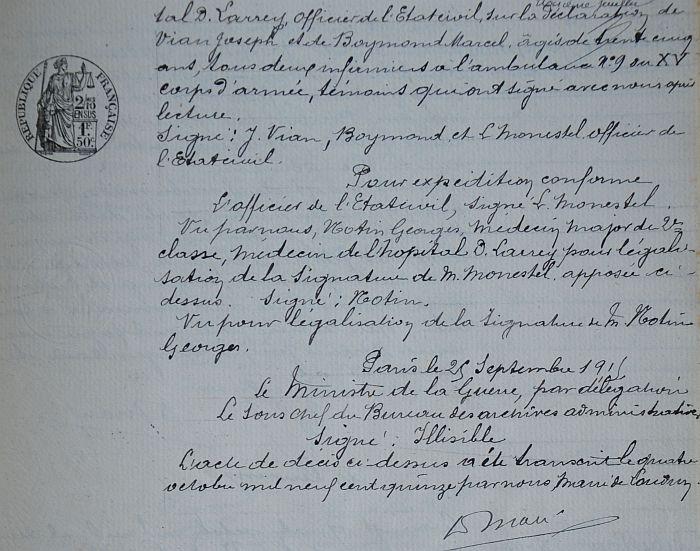 deuxième feuillet
tal D. Larrey, officier de l'Etat civil, sur la déclaration de
Vian Joseph et de Boymond Marcel, agés de trente cinq
ans, tous deux infirmiers à l'ambulance N° 9 du XV
corps d'armée, témoins qui ont signé avec nous après
lecture.
Signé : J. Vian, Boymond et L. Monestel officier de
l'Etat civil.
Pour expédition conforme
L'officier de l'Etat civil, signé L. Monestel.
Vu par nous, Notin Georges, Médecin major de 2e
classe, médecin de l'hopital D. Larrey pour légali-
sation de la signature de M. Monestel apposée ci-
dessus. Signé : Notin.
Vu pour légalisation de la signature de M. Notin
Georges.
Paris le 25 Septembre 1915
Le Ministre de la Guerre, par délégation
Le sous chef du Bureau des archives administratives,
Signé : Illisible
L'acte de décès ci-dessus a été transcrit le quatre
octobre mil neuf cent quinze par nous Maire de
REPUBLIQUE FRANÇAISE
2/10 EN SUS
1F 50c